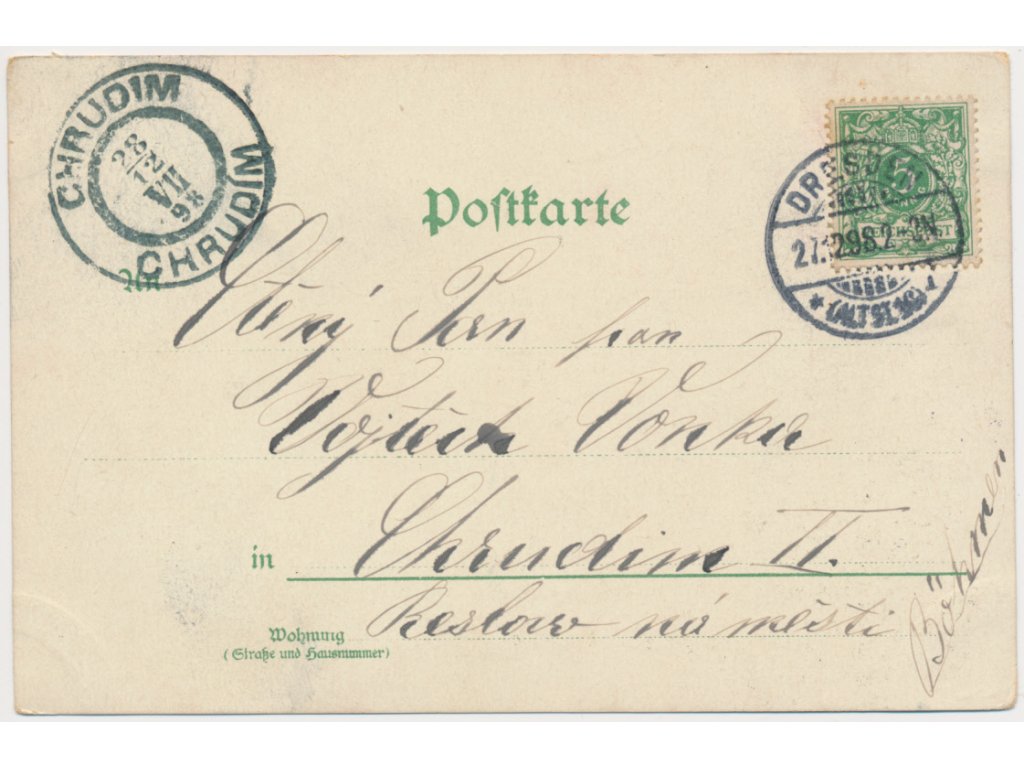 CHRUDIM
28
12
VII
98
CHRUDIM
Postkarte
DRESDEN
27.12.98.2-3N.
* (ALTST.16) 1
5
REICHSPOST
An
Ctěný Pan pan
Vojtěch Vonka
in Chrudim II.
městi
Böhmen
Wohnung
(Straße und Hausnummer)